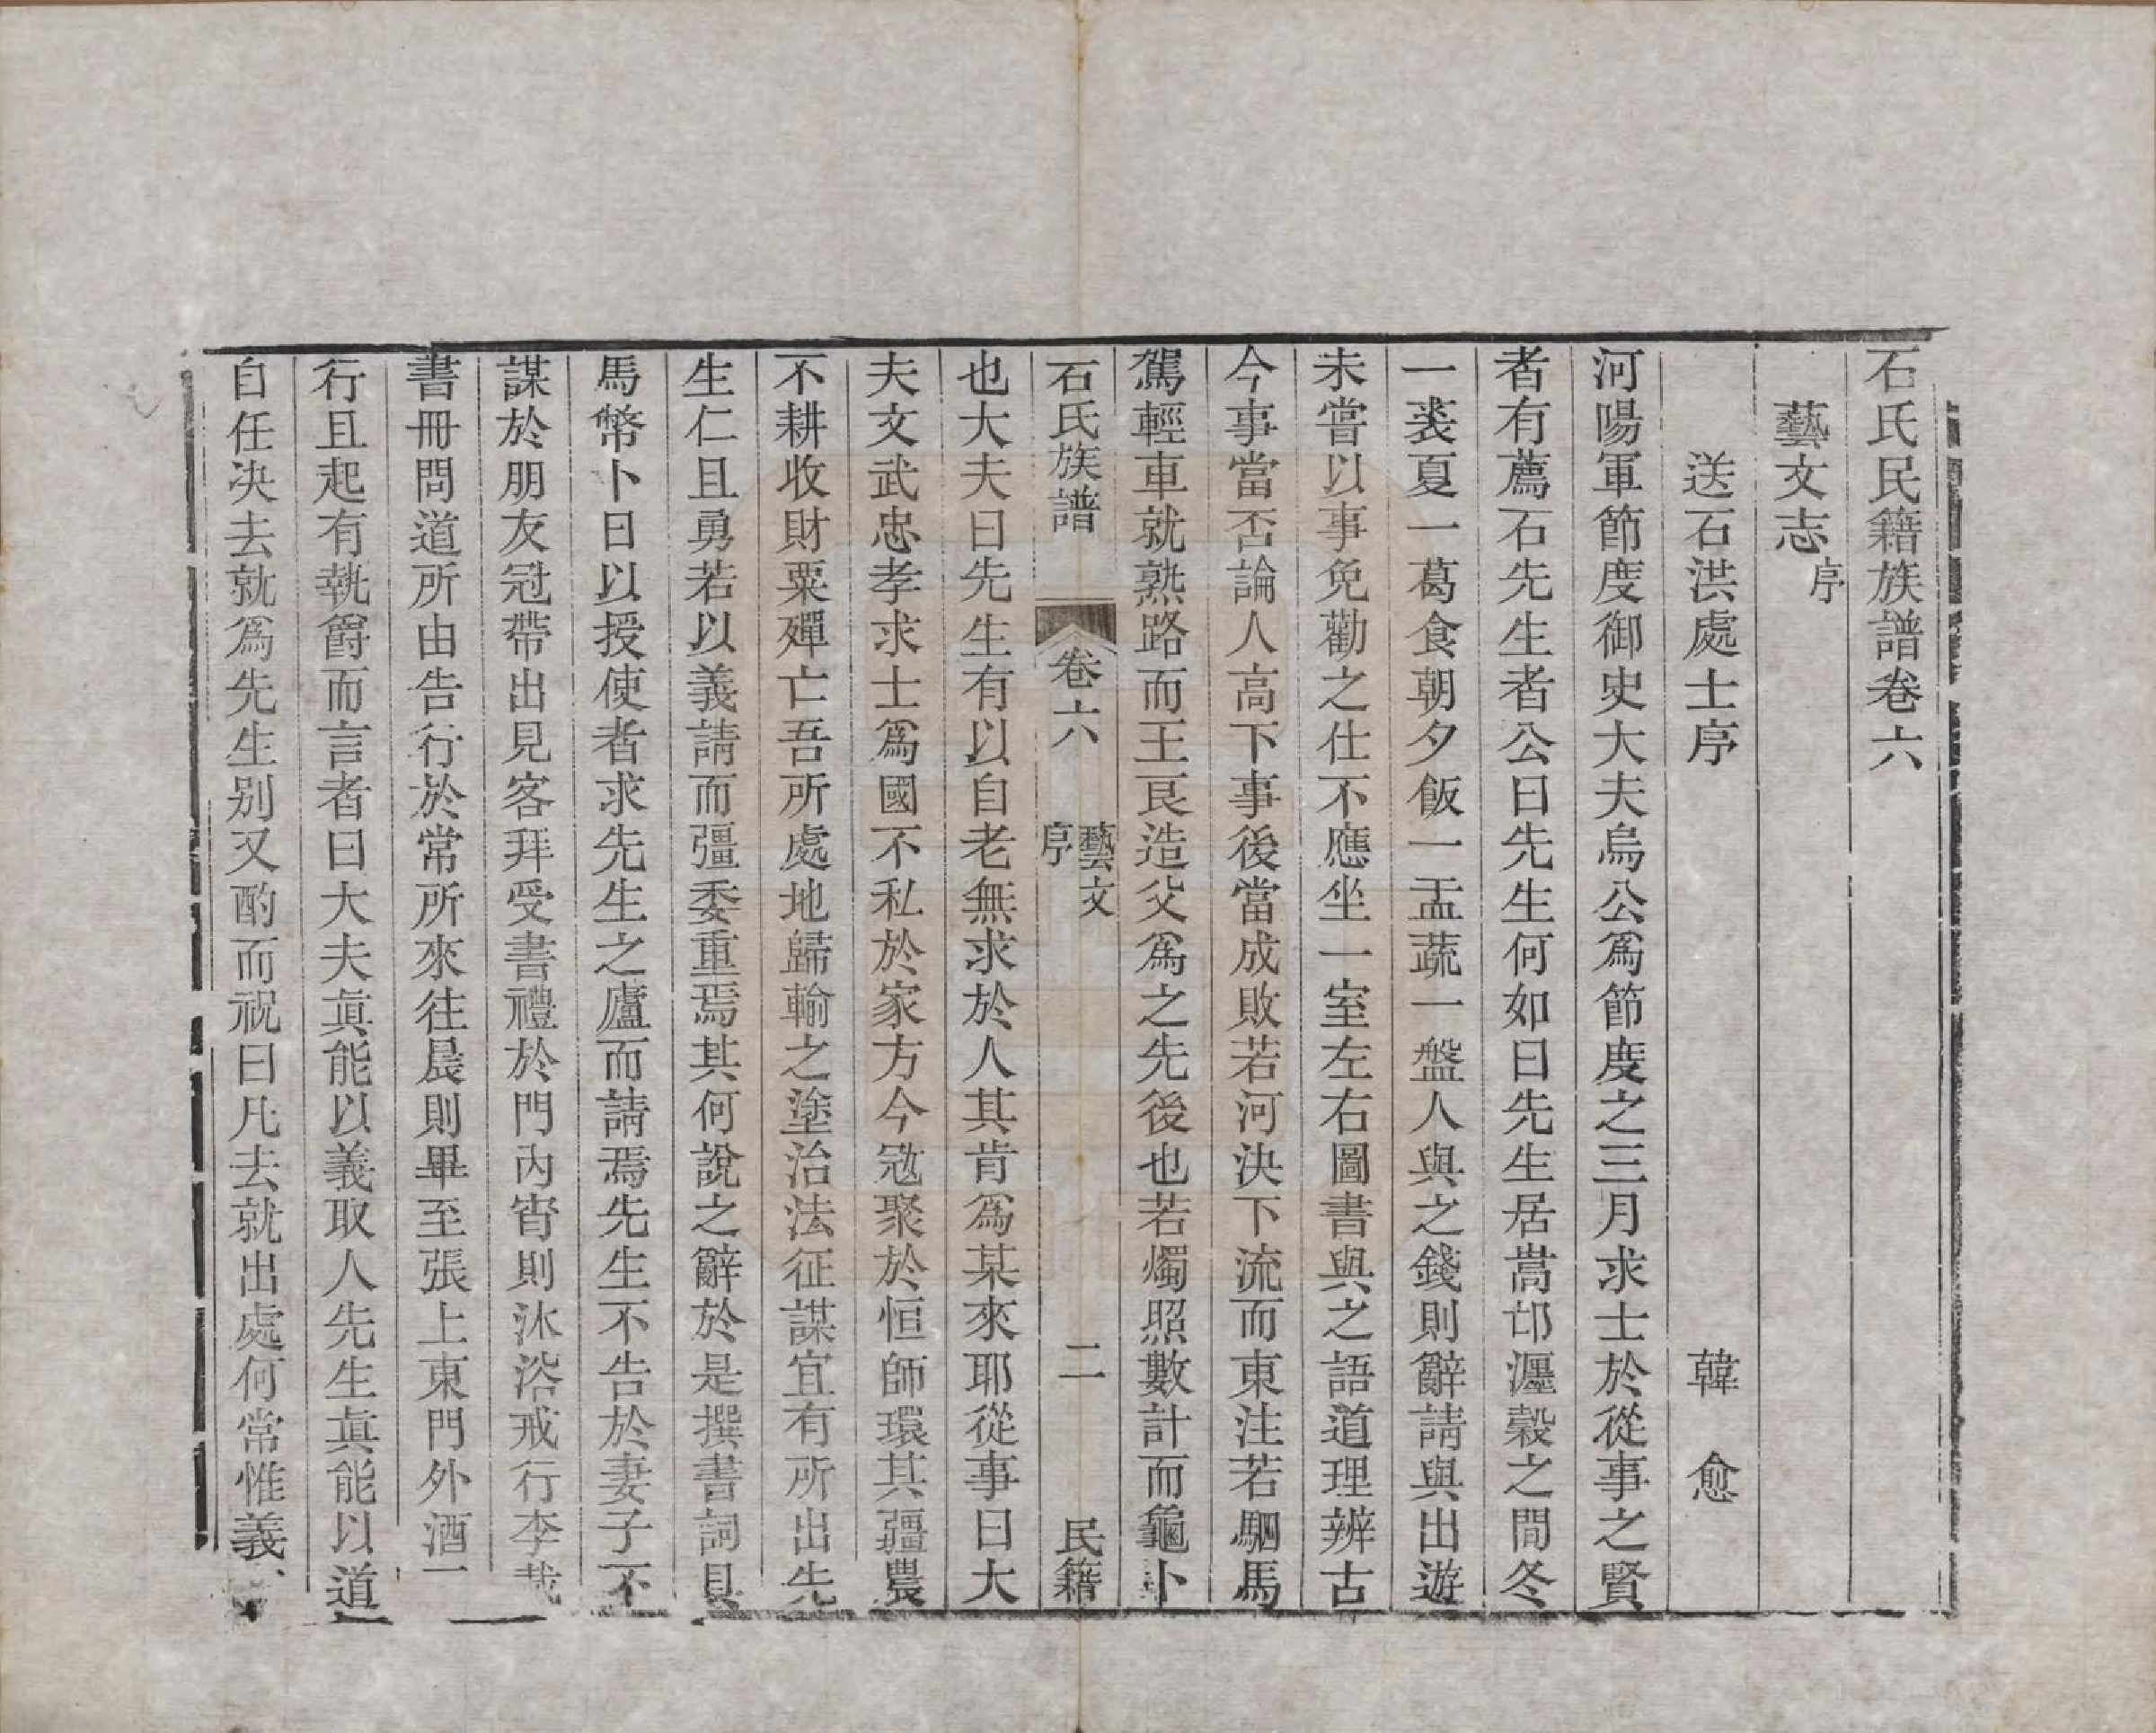 石氏民籍族譜卷六
藝文志序
送石洪處士序 韓愈
河陽軍節度御史大夫烏公爲節度之三月求士於從事之賢
者有薦石先生者公曰先生何如曰先生居嵩邙瀍穀之間冬
一裘夏一葛食朝夕飯一盂蔬一盤人與之錢則辭請與出遊
未嘗以事免勸之仕不應坐一室左右圖書與之語道理辨古
今事當否論人高下事後當成敗若河決下流而東注若駟馬
駕輕車就熟路而王良造父爲之先後也若燭照數計而龜卜
石氏族譜 卷六 藝文序 二 民籍
也大夫曰先生有以自老無求於人其肯爲某來耶從事曰大
夫文武忠孝求士爲國不私於家方今寇聚於恒師環其疆農
不耕收財粟殫亡吾所處地歸輸之塗治法征謀宜有所出先
生仁且勇若以義請而彊委重焉其何說之辭於是撰書詞具
馬幣卜日以授使者求先生之廬而請焉先生不告於妻子不
謀於朋友冠帶出見客拜受書禮於門內宵則沐浴戒行李載
書冊問道所由告行於常所來往晨則畢至張上東門外酒一
行且起有執爵而言者曰大夫眞能以義取人先生眞能以道
自任决去就爲先生别又酌而祝曰凡去就出處何常惟義